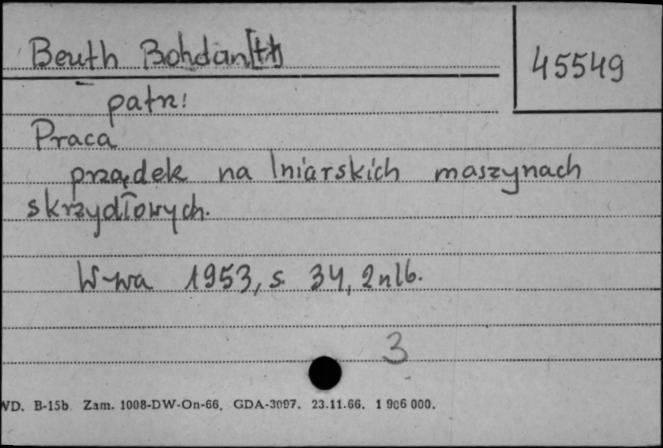 Beuth Bohdan [tł]
45549
patrz:
Praca
prządek na lniarskich maszynach
skrzydłowych.
W-wa 1953, s. 34, 2 nlb.
3
WD. B-15b Zam. 1008-DW-On-66, GDA-3097. 23.11.66. 1 906 000.